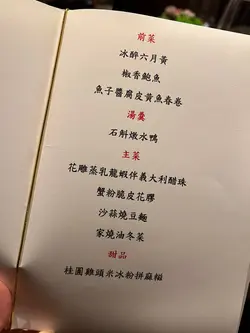 前菜
冰醉六月黃
椒香鮑魚
魚子醬腐皮黃魚春卷
湯羹
石斛燉水鴨
主菜
花雕蒸乳龍蝦伴義大利醋珠
蟹粉脆皮花膠
沙蒜燒豆麵
家燒油冬菜
甜品
桂圓雞頭米冰粉拼麻糍